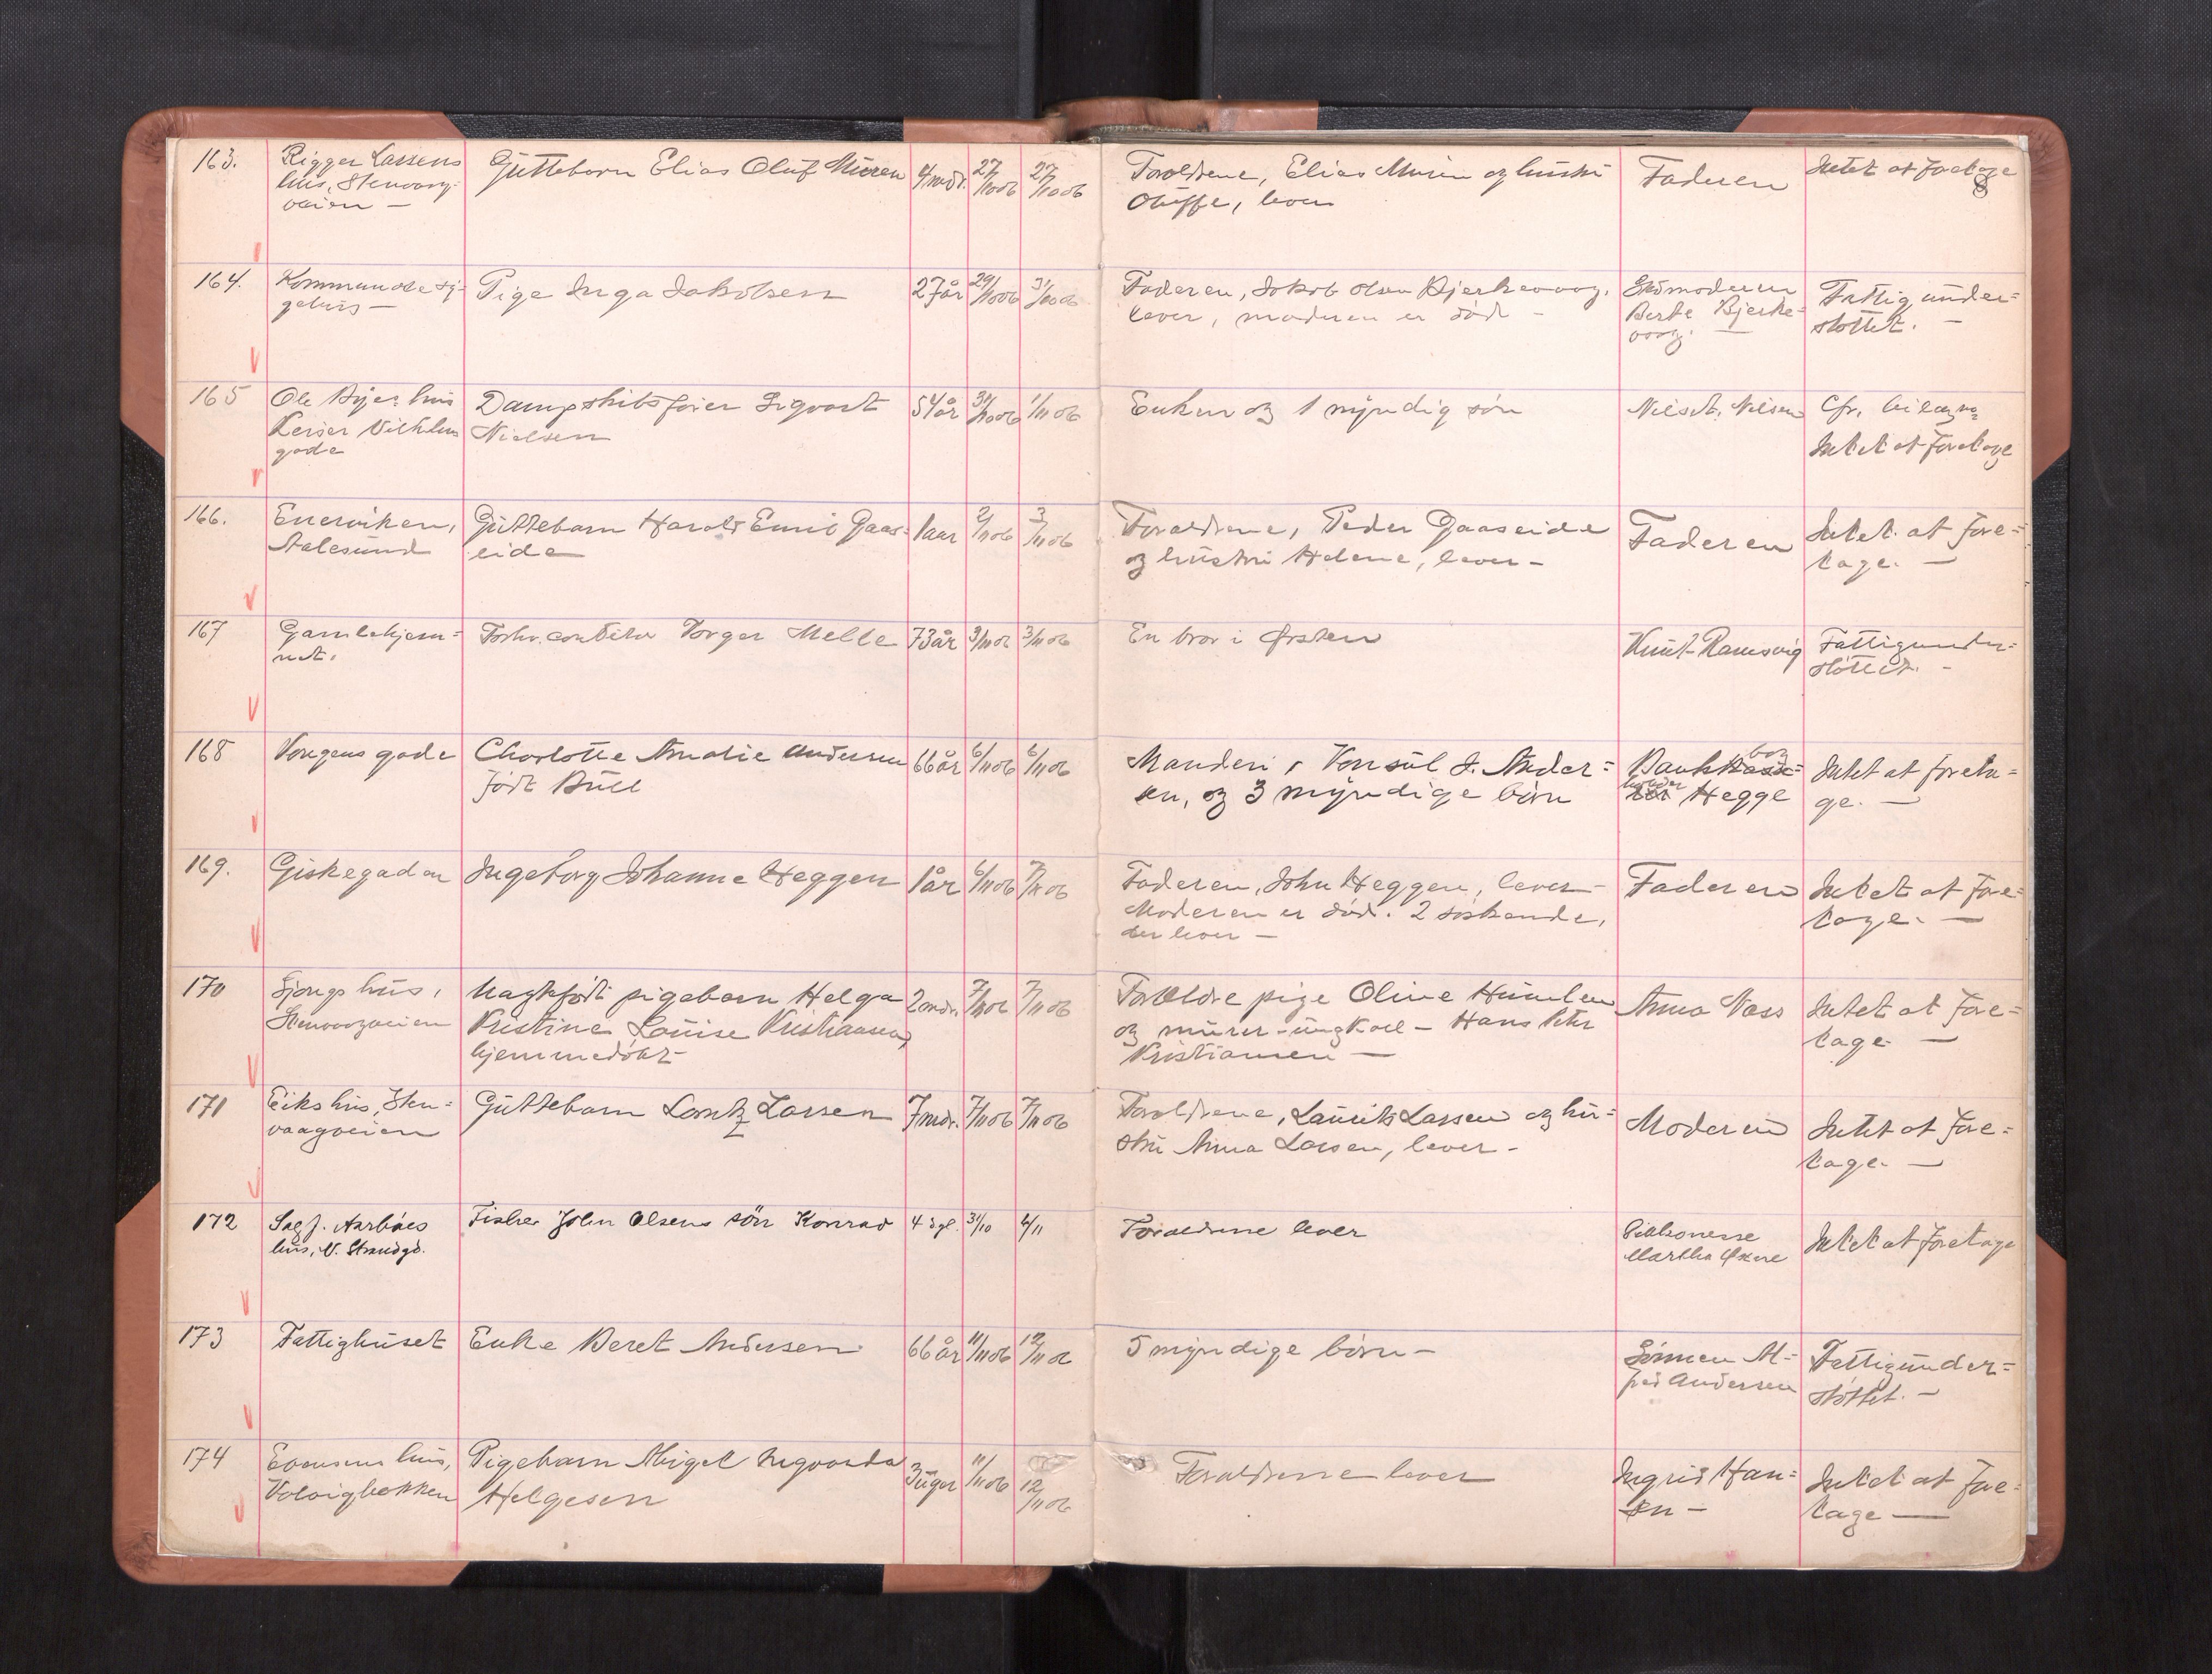 163. Rigger Lassens
hus, Stenvaag-
veien –
Guttebarn Elias Oluf Muren
4 mdr. 27/10 06 27/10 06
Foreldrene, Elias Muren og hustru
Oluffe, lever
Faderen
Intet at foretage
8
164. Kommunale sy-
gehus –
Pige Inga Jakobsen
27 år 29/10 06 31/10 06
Faderen, Jakob Olsen Bjerkevaag,
lever, moderen er død –
Stedmoderen
Berte Bjerke-
vaag. –
Fattigunder=
støttet. –
165 Ole Byes hus
Keiser Vilhelms
gade
Dampskibsfører Sigvart
Nielsen
54 år 31/10 06 1/11 06
Enken og 1 myndig søn
Nils Nilsen
Cfr. bilag
Intet at foretage
166. Enerviken,
Aalesund
Guttebarn Harald Emil Gaas=
eide
1 aar 2/11 06 3/11 06
Foraldrene, Peder Gaaseide
og hustru Helene, lever –
Faderen
Intet at fore=
tage. –
167 Gamlehjem=
met.
Forhv. conditor Torger Melle
73 år 3/11 06 3/11 06
En bror i Ørsten
Knut Ramsvig
Fattigunder=
støttet. –
168 Kongens gade
Charlotte Amalie Andersen
født Bull
66 år 6/11 06 6/11 06
Manden, Konsul J. Ander=
sen, og 3 myndige børn
Bankbog=
holder Hegge
Intet at foreta=
ge. –
169. Giskegaden
Ingeborg Johanne Heggen
1 år 6/11 06 7/11 06
Faderen, John Heggen, lever –
Moderen er død. 2 søskende,
der lever –
Faderen
Intet at fore=
tage. –
170 hus,
Stenvaagveien
Uægtefødt pigebarn Helga
Kristine Louise Kristiansen,
hjemmedøbt –
2 mdr. 7/11 06 7/11 06
Forældre pige Oline Humlen
og murer – ungkarl – Hans Peter
Kristiansen –
Anna Næss
Intet at fore=
tage –
171 Eiks hus, Sten=
vaagveien
Guttebarn Larsen
7 mdr. 7/11 06 7/11 06
Foraldrene, Laurits Larsen og hu=
stru Anna Larsen, lever –
Moderen
Intet at fore=
tage. –
172 Sagf. Aarbåes
hus, N. Strandgd.
Fisker John Olsens søn Konrad
4 dgl. 31/10 6/11
Foraldrene lever
Diakonesse
Martha
Intet at foretage
173 Fattighuset
Enke Beret Andersen
66 år 11/11 06 12/11 06
5 myndige børn –
Sønnen Al=
fred Andersen
Fattigunder=
støttet. –
174 Evensens hus,
Volsigbakken
Pigebarn Abigel Ingvarda
Helgesen
3 uger 11/11 06 12/11 06
Foraldrene lever
Ingrid Han=
sen –
Intet at fore=
tage –